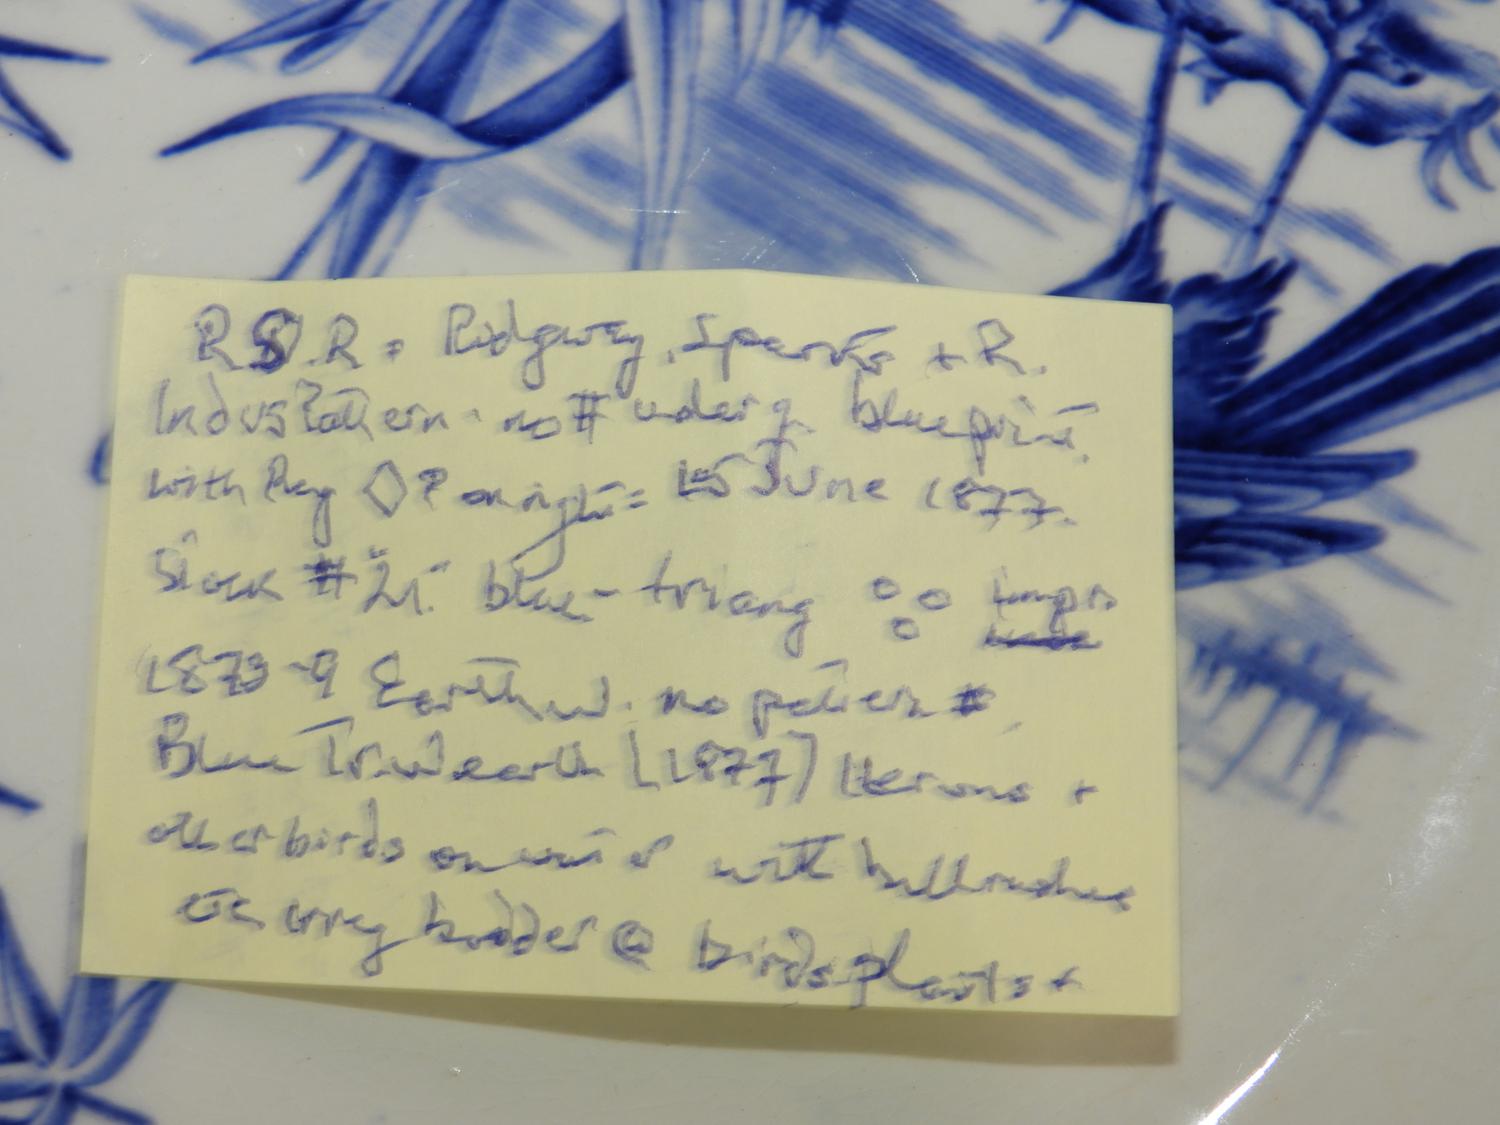 RS.R = Ridgway, Sparks + R.
Indus Pattern. no # under g blueprint.
with Reg ◇? on right = 15 June 1877.
Stock # 21. blue - triang impr.
1873-9 Earthw. no pattern #,
Blue Tr. W earth [1877] Herons +
other birds with bullrushes
etc border @ birds plants +